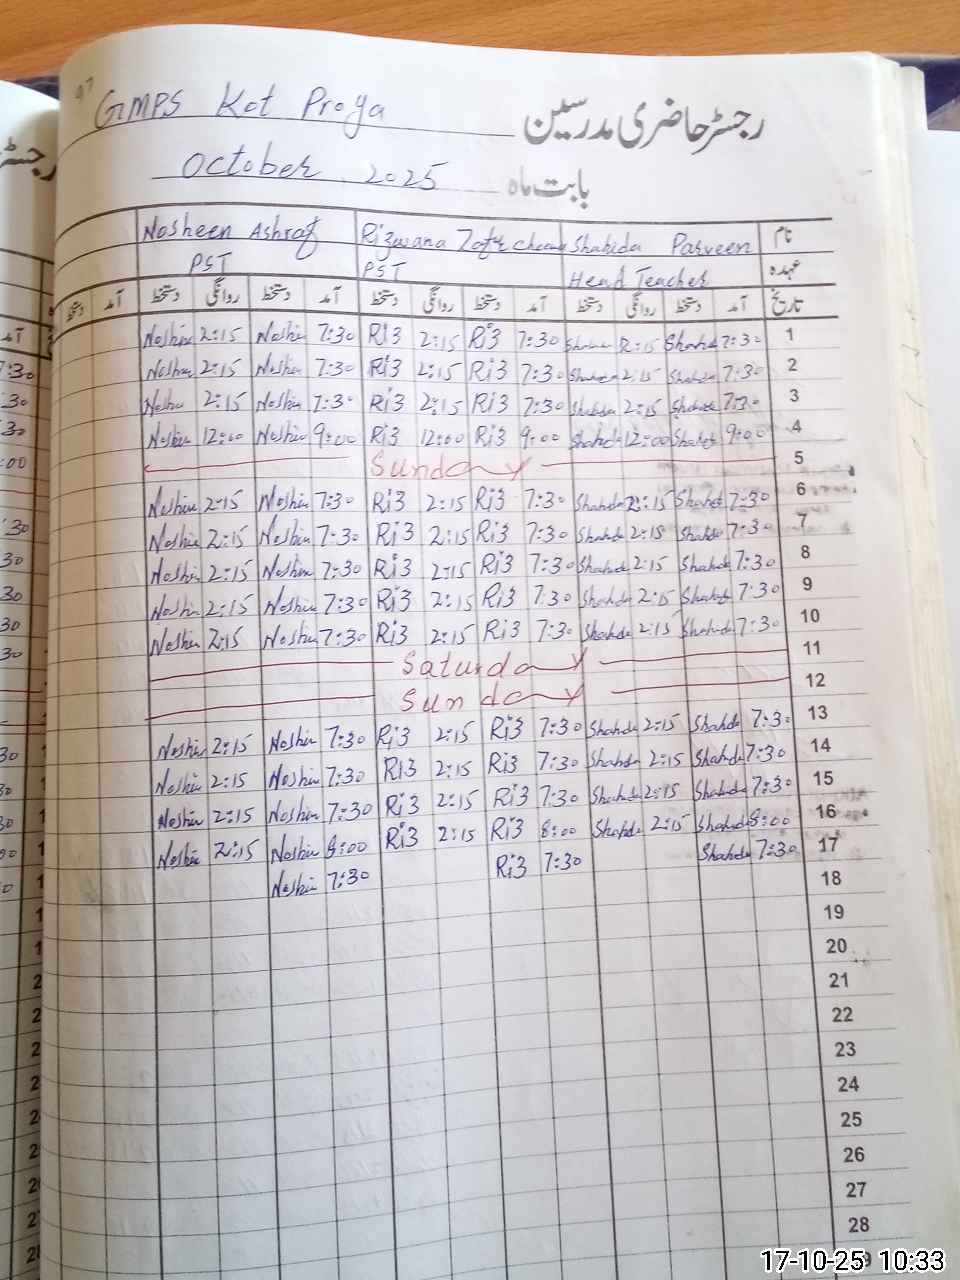 GMPS Kot Proya رجسٹر حاضری مدرسین
October 2025 بابت ماہ
Nosheen Ashraf Rizwana Shahida Parveen نام
PST PST Head Teacher عہدہ
دستخط آمد دستخط روانگی دستخط آمد دستخط روانگی دستخط آمد دستخط روانگی دستخط آمد تاریخ
Noshin 2:15 Noshin 7:30 Ri3 2:15 Ri3 7:30 Shahda 2:15 Shahda 7:30 1
Noshin 2:15 Noshin 7:30 Ri3 2:15 Ri3 7:30 Shahda 2:15 Shahda 7:30 2
Noshin 2:15 Noshin 7:30 Ri3 2:15 Ri3 7:30 Shahda 2:15 Shahda 7:30 3
Noshin 12:00 Noshin 9:00 Ri3 12:00 Ri3 9:00 Shahda 12:00 Shahda 9:00 4
Sunday 5
Noshin 2:15 Noshin 7:30 Ri3 2:15 Ri3 7:30 Shahda 2:15 Shahda 7:30 6
Noshin 2:15 Noshin 7:30 Ri3 2:15 Ri3 7:30 Shahda 2:15 Shahda 7:30 7
Noshin 2:15 Noshin 7:30 Ri3 2:15 Ri3 7:30 Shahda 2:15 Shahda 7:30 8
Noshin 2:15 Noshin 7:30 Ri3 2:15 Ri3 7:30 Shahda 2:15 Shahda 7:30 9
Noshin 2:15 Noshin 7:30 Ri3 2:15 Ri3 7:30 Shahda 2:15 Shahda 7:30 10
Saturday 11
Sunday 12
Noshin 2:15 Noshin 7:30 Ri3 2:15 Ri3 7:30 Shahda 2:15 Shahda 7:30 13
Noshin 2:15 Noshin 7:30 Ri3 2:15 Ri3 7:30 Shahda 2:15 Shahda 7:30 14
Noshin 2:15 Noshin 7:30 Ri3 2:15 Ri3 7:30 Shahda 2:15 Shahda 7:30 15
Noshin 2:15 Noshin 8:00 Ri3 2:15 Ri3 8:00 Shahda 2:15 Shahda 8:00 16
Noshin 7:30 Ri3 7:30 Shahda 7:30 17
18
19
20
21
22
23
24
25
26
27
28
17-10-25 10:33